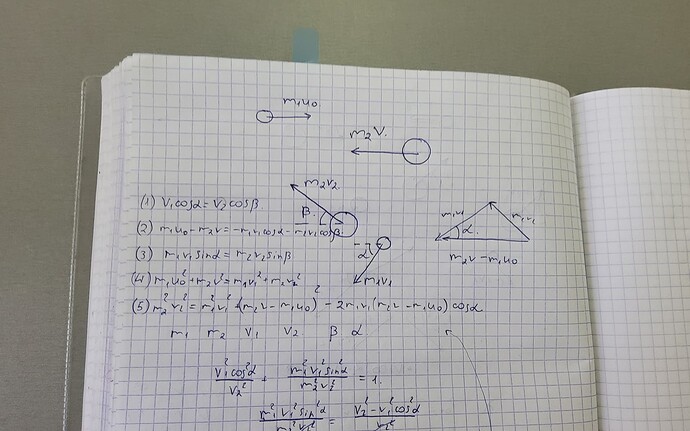 m₁u₀
m₂v.
m₂v₂.
β.
α
m₁v₁
m₁v₁
α.
m₂v - m₁u₀
(1) v₁cosα = v₂cosβ.
(2) m₁u₀ - m₂v = -m₁v₁cosα - m₂v₂cosβ.
(3) m₁v₁sinα = m₂v₂sinβ
(4) m₁u₀² + m₂v² = m₁v₁² + m₂v₂²
(5) m₂²v₂² = m₁²v₁² + (m₂v - m₁u₀)² - 2m₁v₁(m₂v - m₁u₀)cosα
m₁ m₂ v₁ v₂ β α
v₁²cos²α/v₂² + m₁²v₁²sin²α/m₂²v₂² = 1.
m₁²v₁²sin²α/m₂²v₂² = v₂² - v₁²cos²α/v₂²